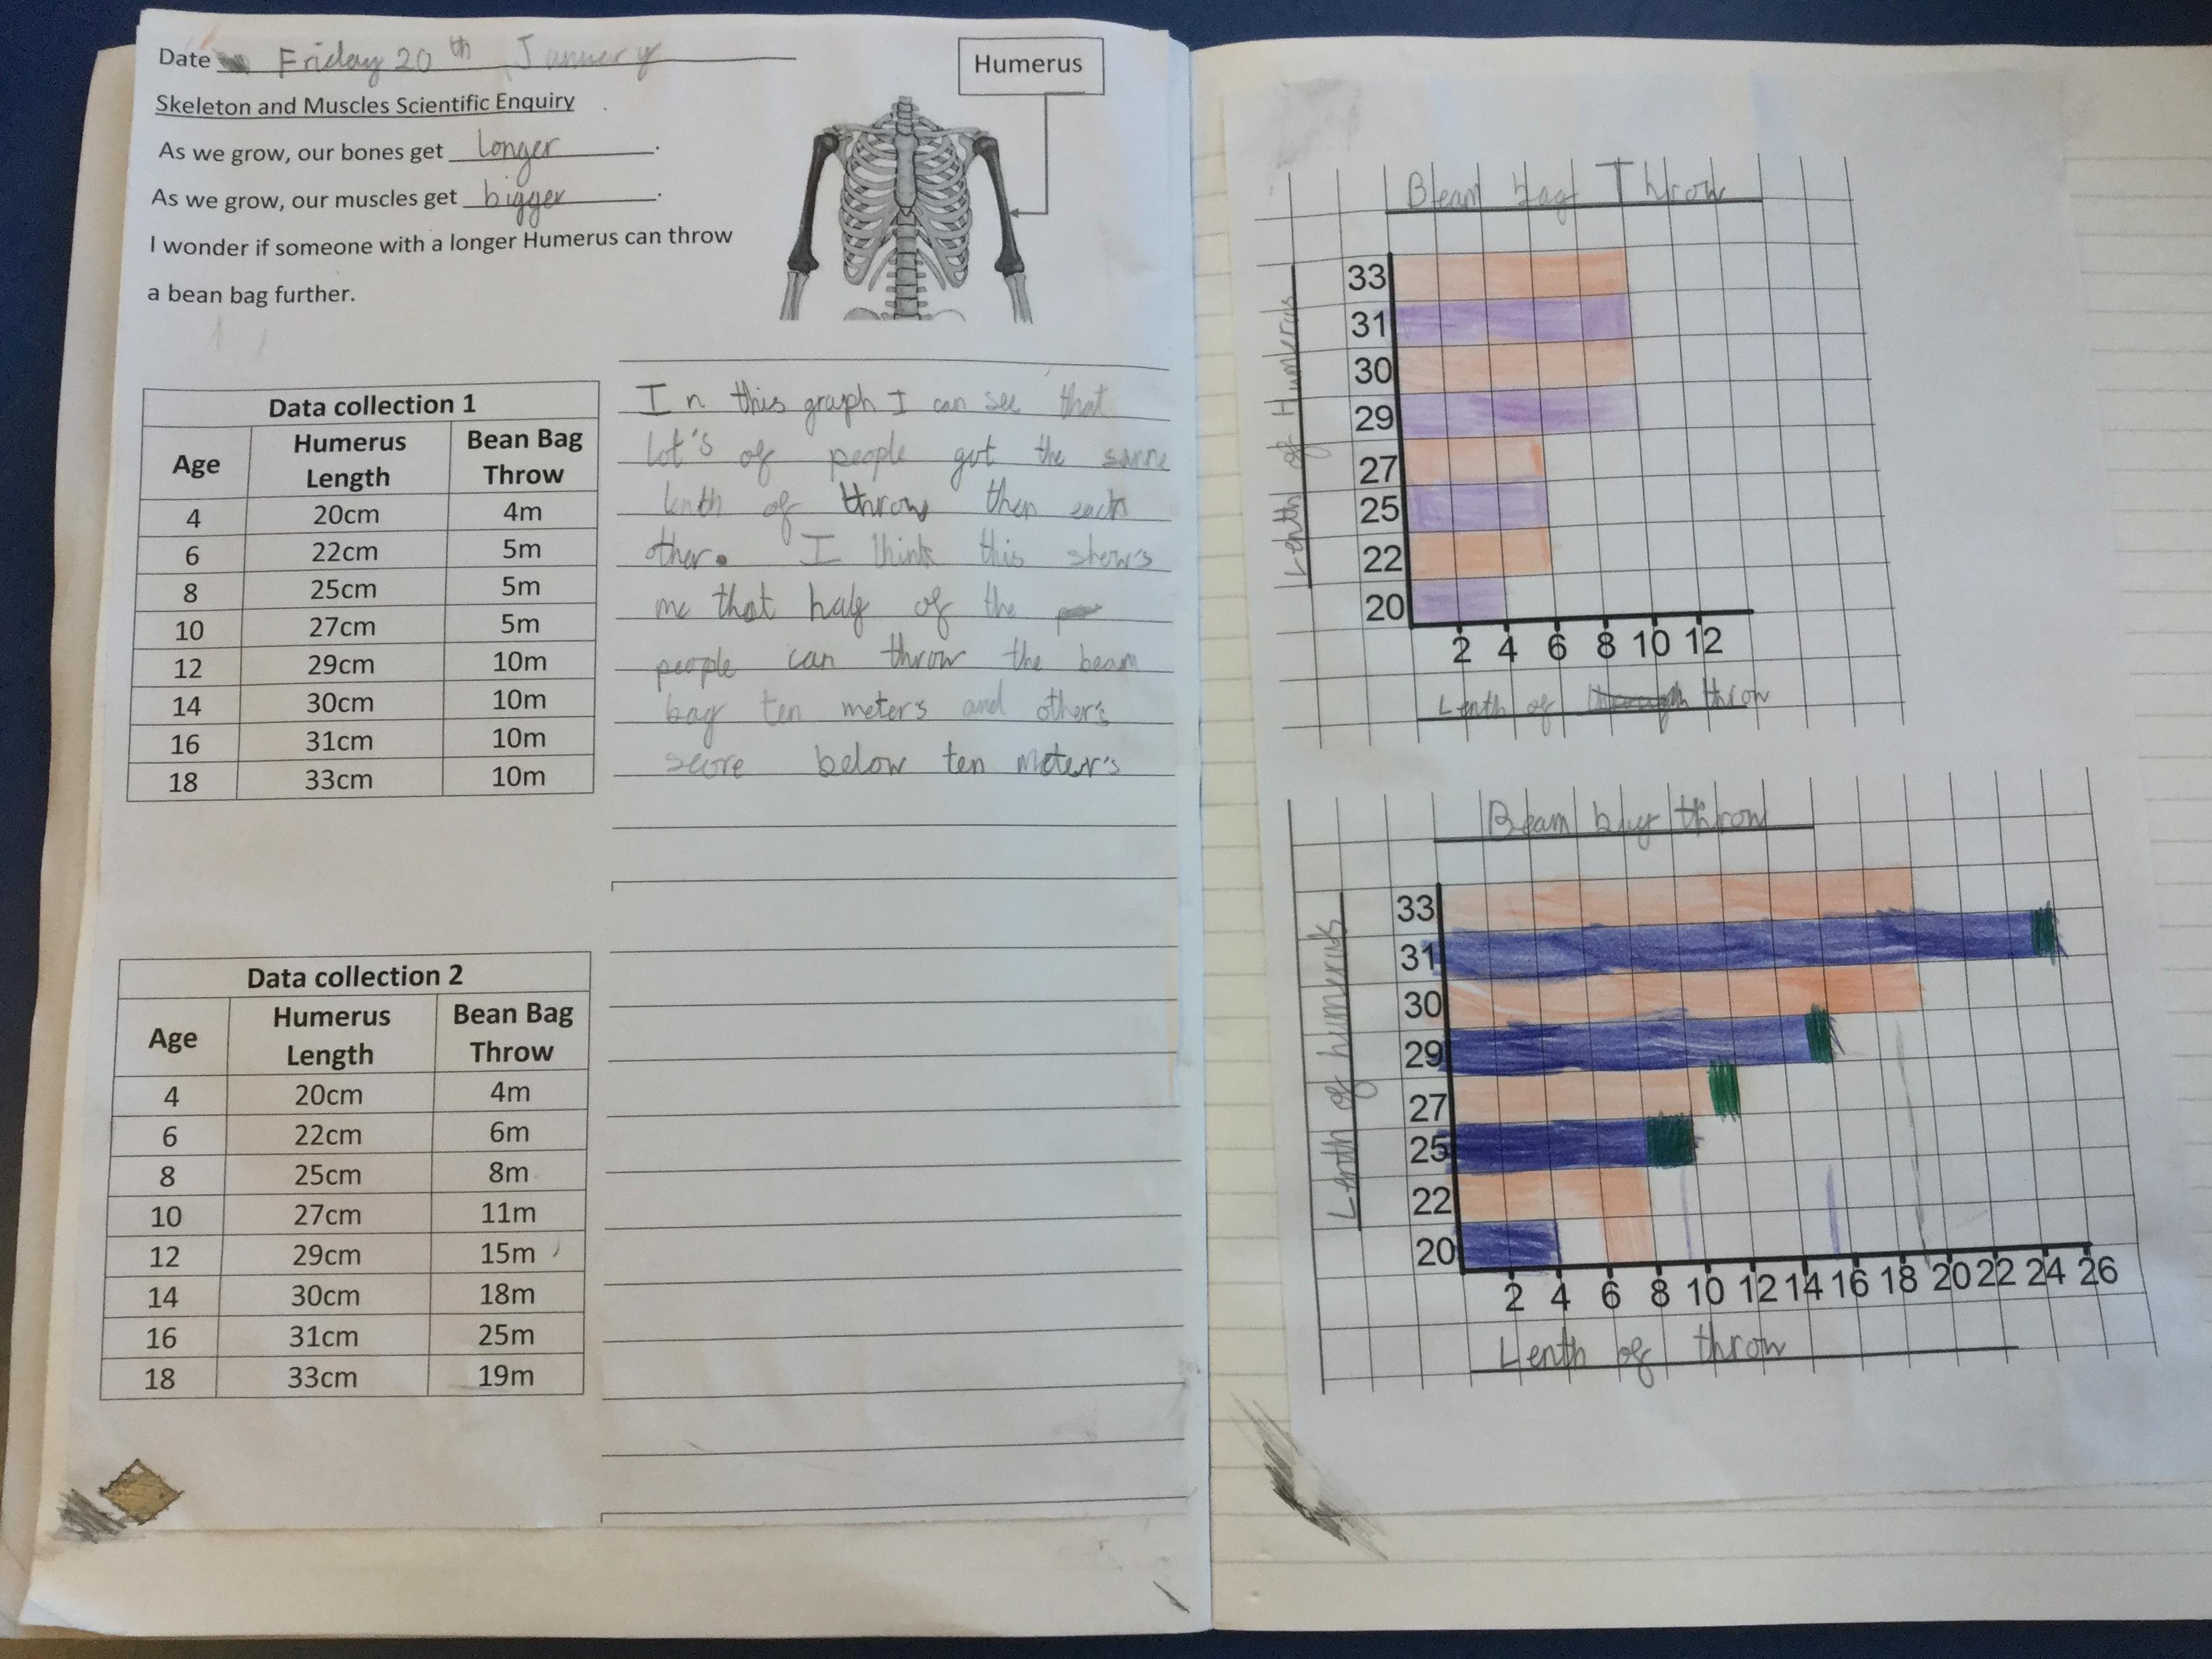 Date Friday 20th January
Humerus
Skeleton and Muscles Scientific Enquiry
As we grow, our bones get longer.
As we grow, our muscles get bigger.
I wonder if someone with a longer Humerus can throw
a bean bag further.
Data collection 1
Age Humerus Length Bean Bag Throw
4 20cm 4m
6 22cm 5m
8 25cm 5m
10 27cm 5m
12 29cm 10m
14 30cm 10m
16 31cm 10m
18 33cm 10m
In this graph I can see that
lot's of people got the same
lenth of throw then each
other. I think this show's
me that half of the
people can throw the beam
bag ten meters and other's
score below ten meter's
Data collection 2
Age Humerus Length Bean Bag Throw
4 20cm 4m
6 22cm 6m
8 25cm 8m
10 27cm 11m
12 29cm 15m
14 30cm 18m
16 31cm 25m
18 33cm 19m
Beam bag Throw
Lenth of Humkerus
33
31
30
29
27
25
22
20
2 4 6 8 10 12
Lenth of throw
Beam bag throw
Lenth of humerus
33
31
30
29
27
25
22
20
2 4 6 8 10 12 14 16 18 20 22 24 26
Lenth of throw